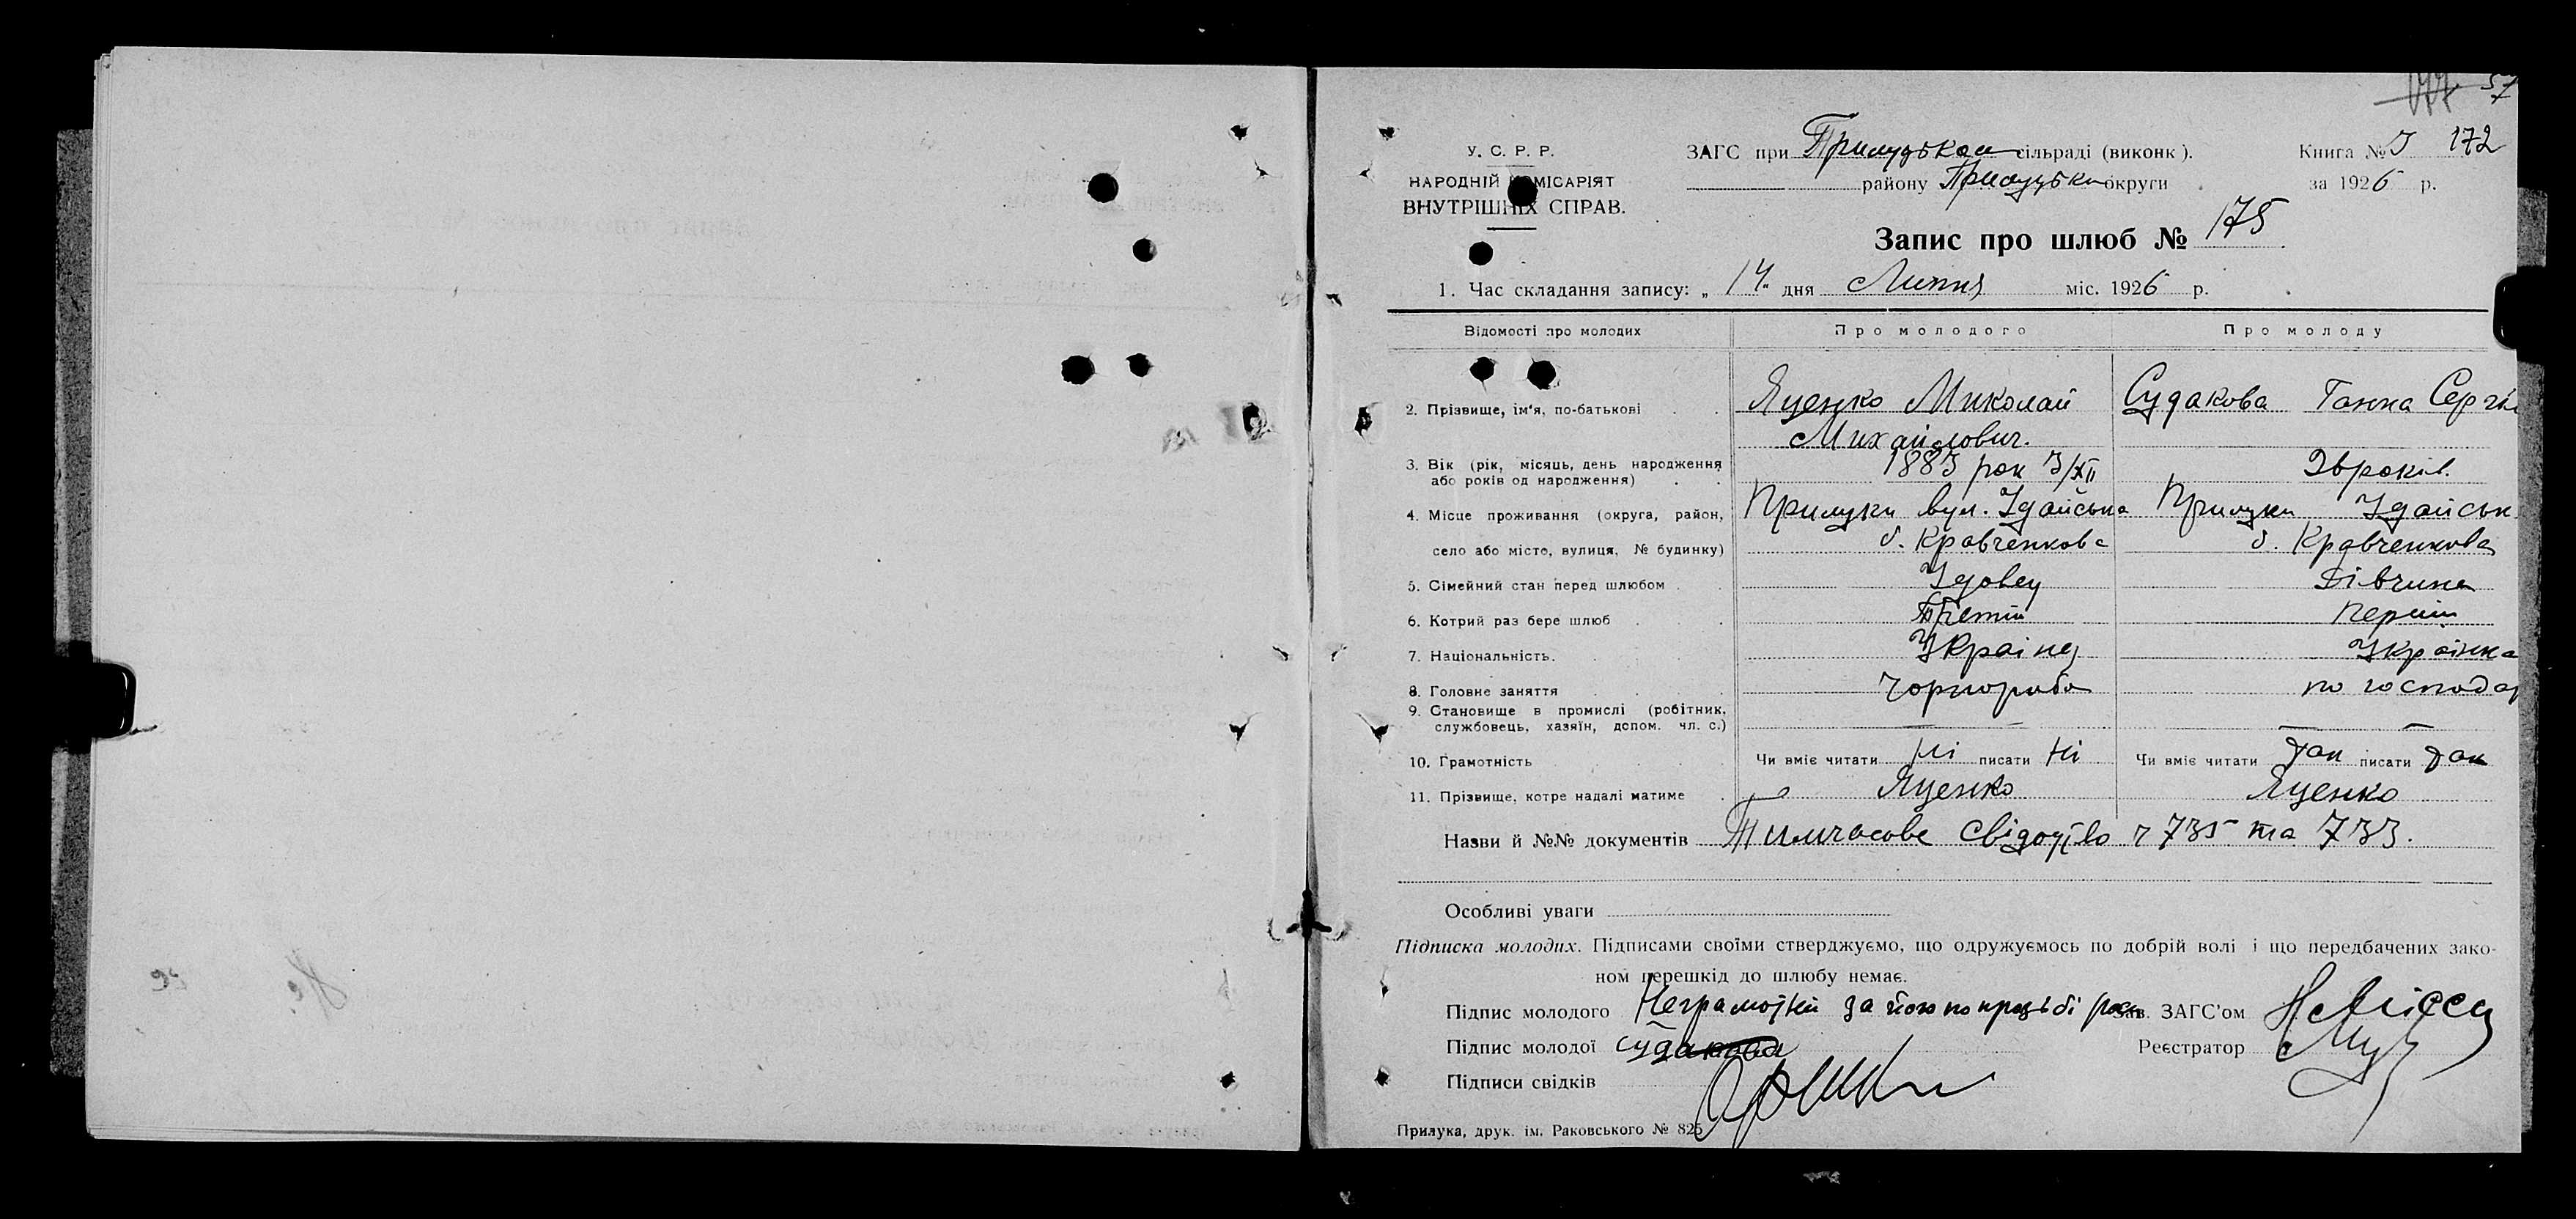 57
У. С. Р. Р.
НАРОДНІЙ КОМІСАРІЯТ
ВНУТРІШНІХ СПРАВ.
ЗАГС при Прилуцьком сільраді (виконк).
району Прилуцьки округи
Книга № 3 172
за 1926 р.
Запис про шлюб № 175
1. Час складання запису: „14" дня Липня міс. 1926 р.
Відомості про молодих Про молодого Про молоду
2. Прізвище, ім'я, по-батькові Яценко Миколай Михайлович. Судакова Ганна Сергі
3. Вік (рік, місяць, день народження або років од народження) 1883 рок 3/XII 36 років.
4. Місце проживання (округа, район, Прилуки вул. Удайська Прилуки Удайськ
село або місто, вулиця, № будинку) б. Кравченкова б. Кравченкова
5. Сімейний стан перед шлюбом Удовец Дівчина
6. Котрий раз бере шлюб Третій Перший
7. Національність. Українец Українка
8. Головне заняття Чорнороб по господар
9. Становище в промислі (робітник, службовець, хазяїн, допом. чл. с.) — — — —
10. Грамотність Чи вміє читати Ні писати Ні Чи вміє читати так писати так
11. Прізвище, котре надалі матиме Яценко Яценко
Назви й №№ документів Тимчасове свідоцтво ч 735 та 733.
Особливі уваги
Підписка молодих. Підписами своїми стверджуємо, що одружуємось по добрій волі і що передбачених зако-
ном перешкід до шлюбу немає.
Підпис молодого Неграмотний за його по прозьбі
Зав. ЗАГС'ом
Підпис молодої Судакова
Реєстратор
Підписи свідків
Прилука, друк. ім. Раковського № 825